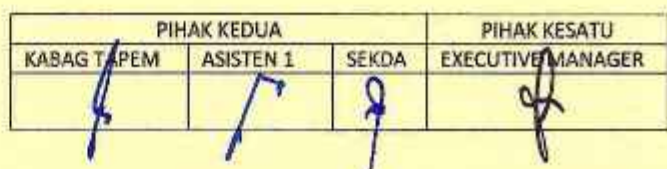 PIHAK KEDUA PIHAK KESATU
KABAG TAPEM ASISTEN 1 SEKDA EXECUTIVE MANAGER